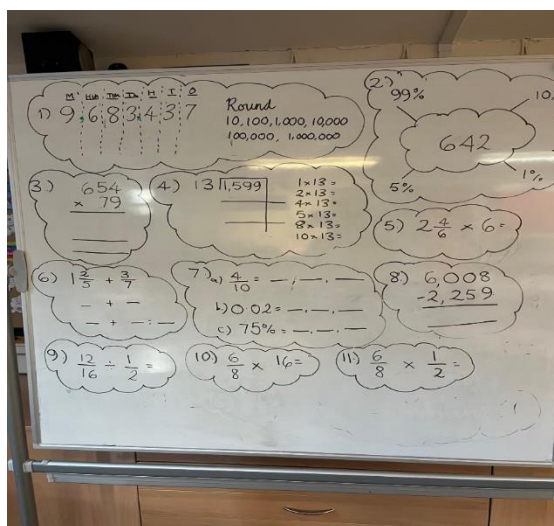 M HTh TTh Th H T O
1) 9,683,437
Round
10, 100, 1,000, 10,000
100,000, 1,000,000
2)
99%
10,
642
5%
1%
3) 654
× 79
4) 13 1,599
1 x 13 =
2 x 13 =
4 x 13 =
5 x 13 =
8 x 13 =
10 x 13 =
5) 2 4/6 × 6 =
6) 1 2/5 + 3/7
_ + _
_ + _ = _
7) a) 4/10 = _, _, _
b) 0.02 = _, _, _
c) 75% = _, _, _
8) 6,008
-2,259
9) 12/16 ÷ 1/2 =
10) 6/8 × 16 =
11) 6/8 × 1/2 =